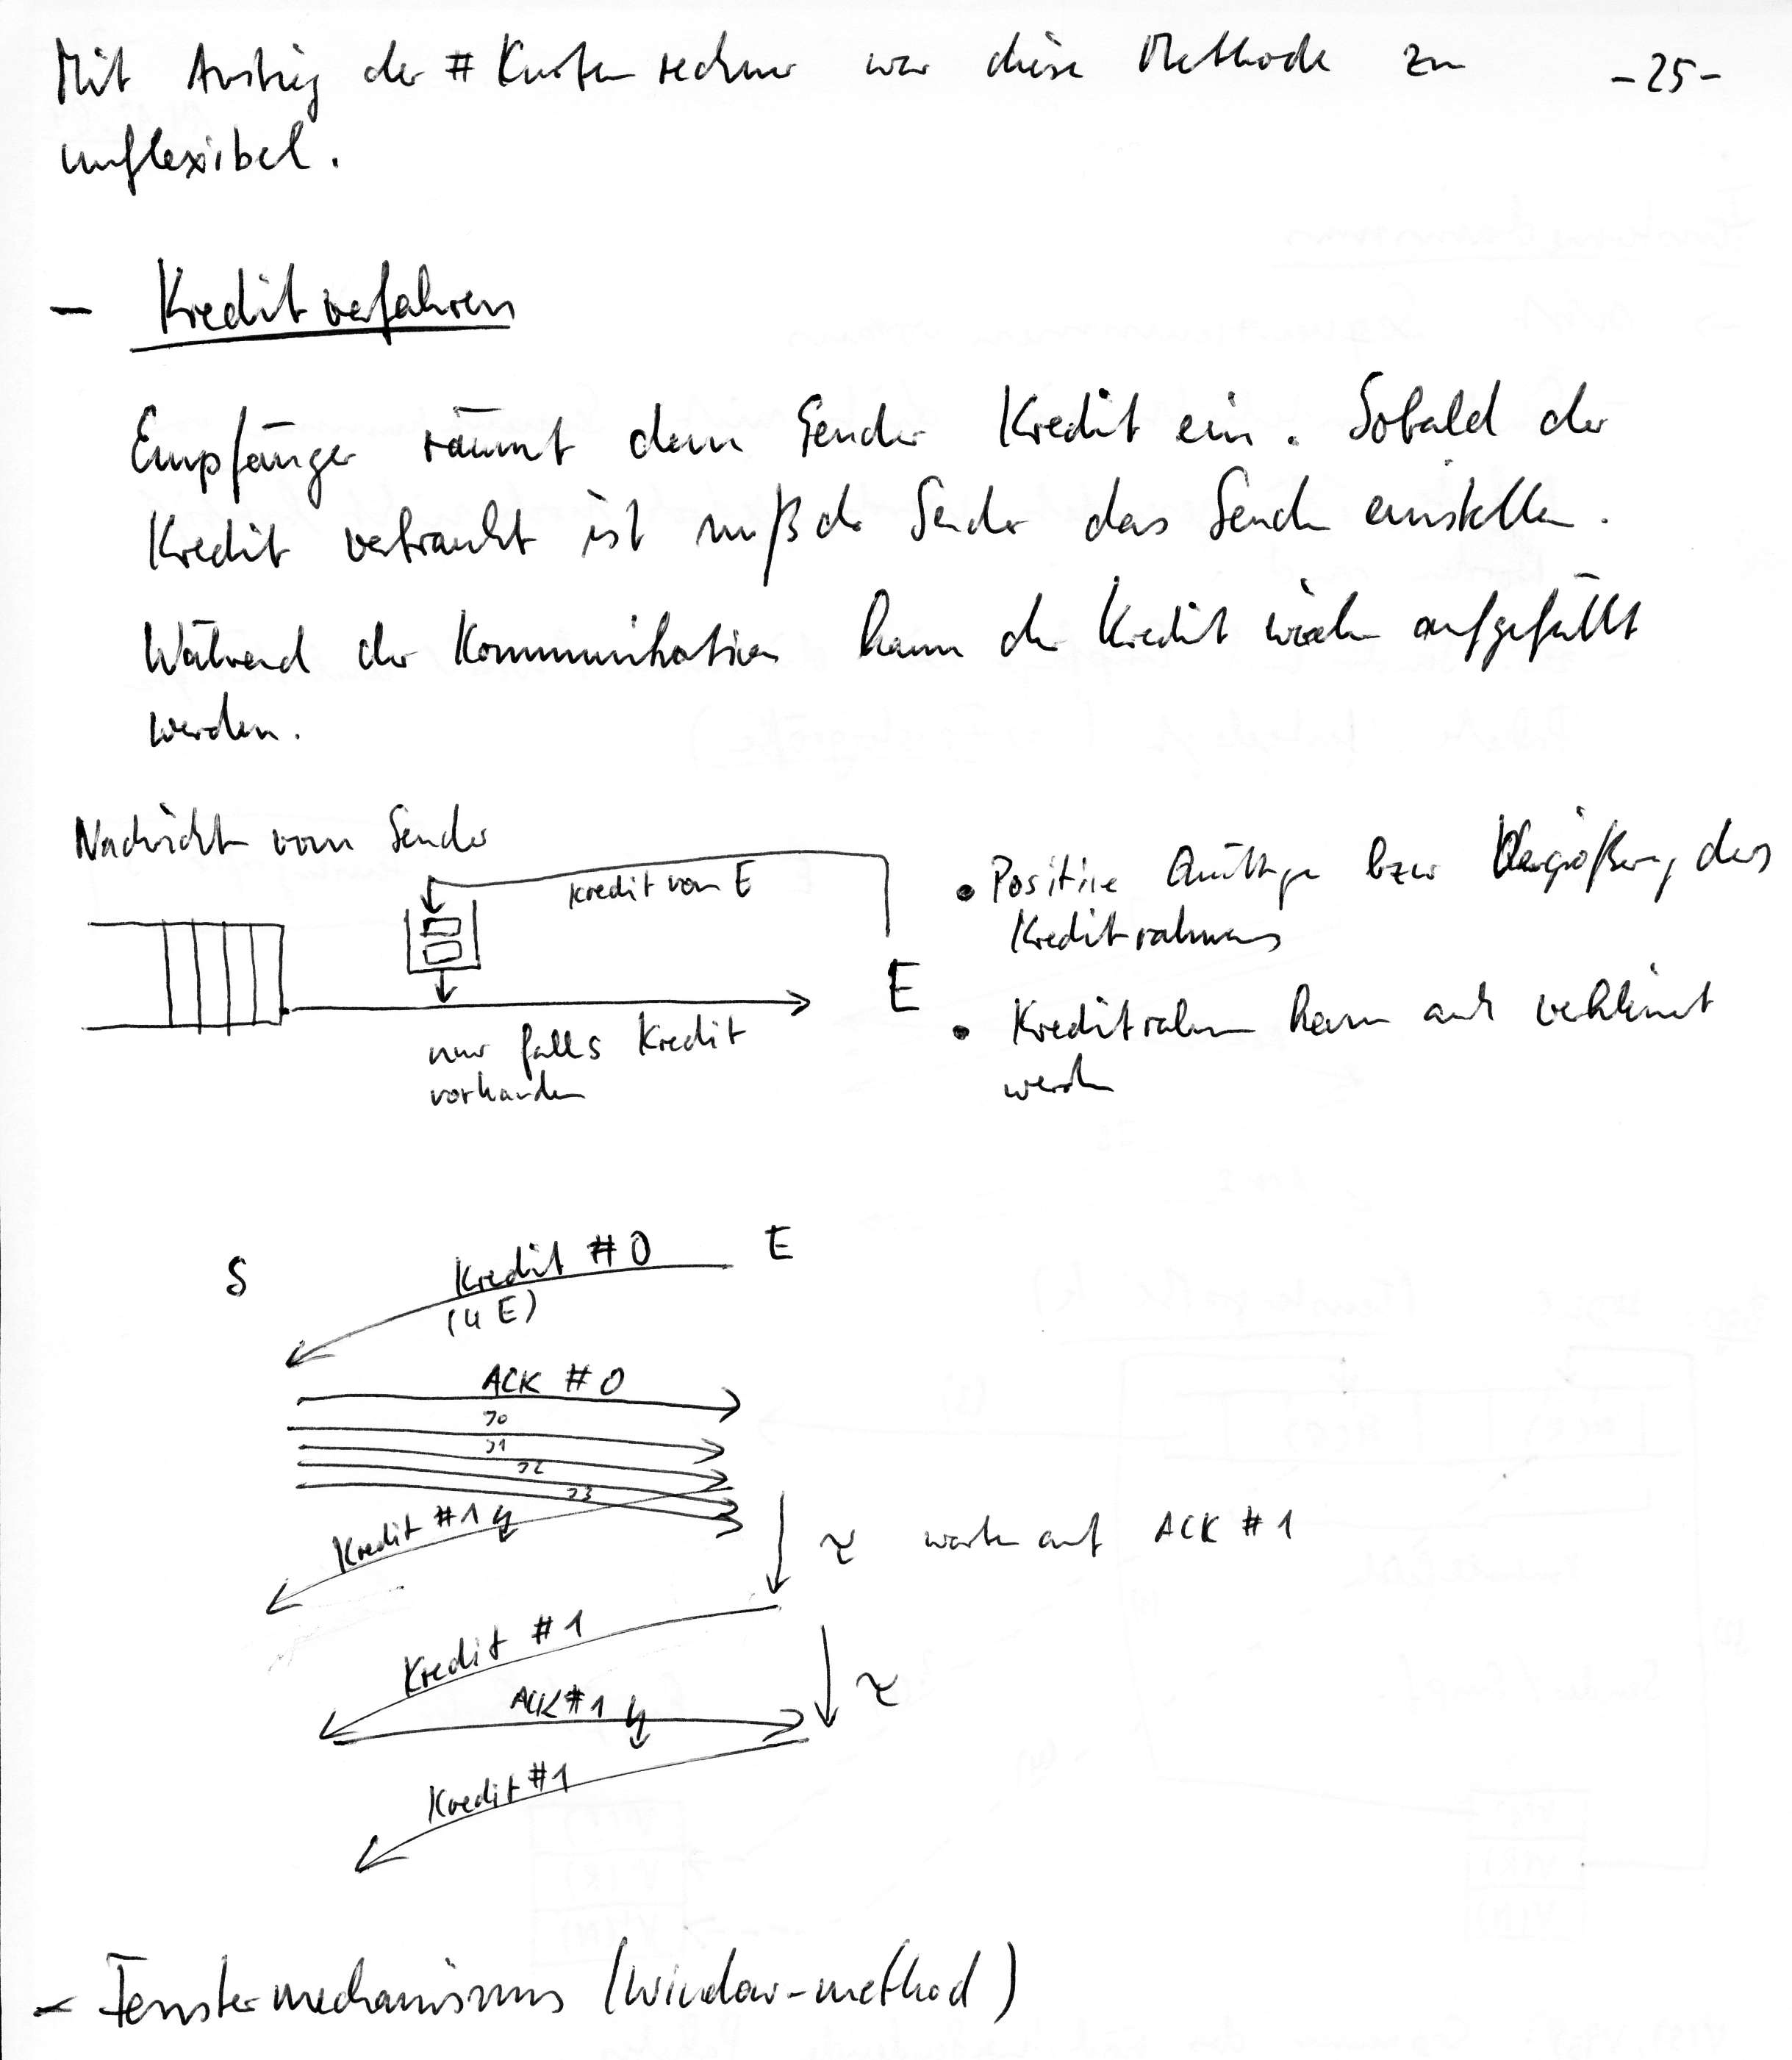 Mit Anstieg der # Knotenrechner war diese Methode zu
-25-
unflexibel.
- Kreditverfahren
Empfänger räumt dem Sender Kredit ein. Sobald der
Kredit verbraucht ist muß der Sender das Senden einstellen.
Während der Kommunikation kann der Kredit wieder aufgefüllt
werden.
Nachricht vom Sender
Kredit von E
E
nur falls Kredit
vorhanden
• Positive Quittage bzw Vergrößerung des
Kreditrahmens
• Kreditrahmen kann auch verkleinert
werden
S
Kredit #0
E
(4 E)
ACK #0
J0
J1
J2
J3
Kredit #1
τ warten auf ACK #1
Kredit #1
ACK #1
τ
Kredit #1
- Fenstermechanismus (Window-method)